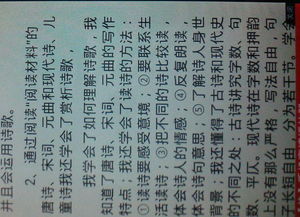 并且会运用诗歌。
2、通过阅读“阅读材料”的
唐诗、宋词、元曲和现代诗、儿
童诗我还学会了赏析诗歌，
我学会了如何理解诗歌，我
知道了唐诗、宋词、元曲的写作
特点，我还学会了读诗的方法：
①读诗要感受意境；②要联系生
活读诗；③把不同的诗比较读，
体会诗人的情感；④反复朗读，
体会诗句意思；⑤了解诗人身世
背景。我还懂得了古诗和现代诗
的不同之处：古诗讲究字数、句
数、平仄。现代诗在字数和押韵
上没有那么严格，写法自由，句
子长短自由，分为若干节。学会